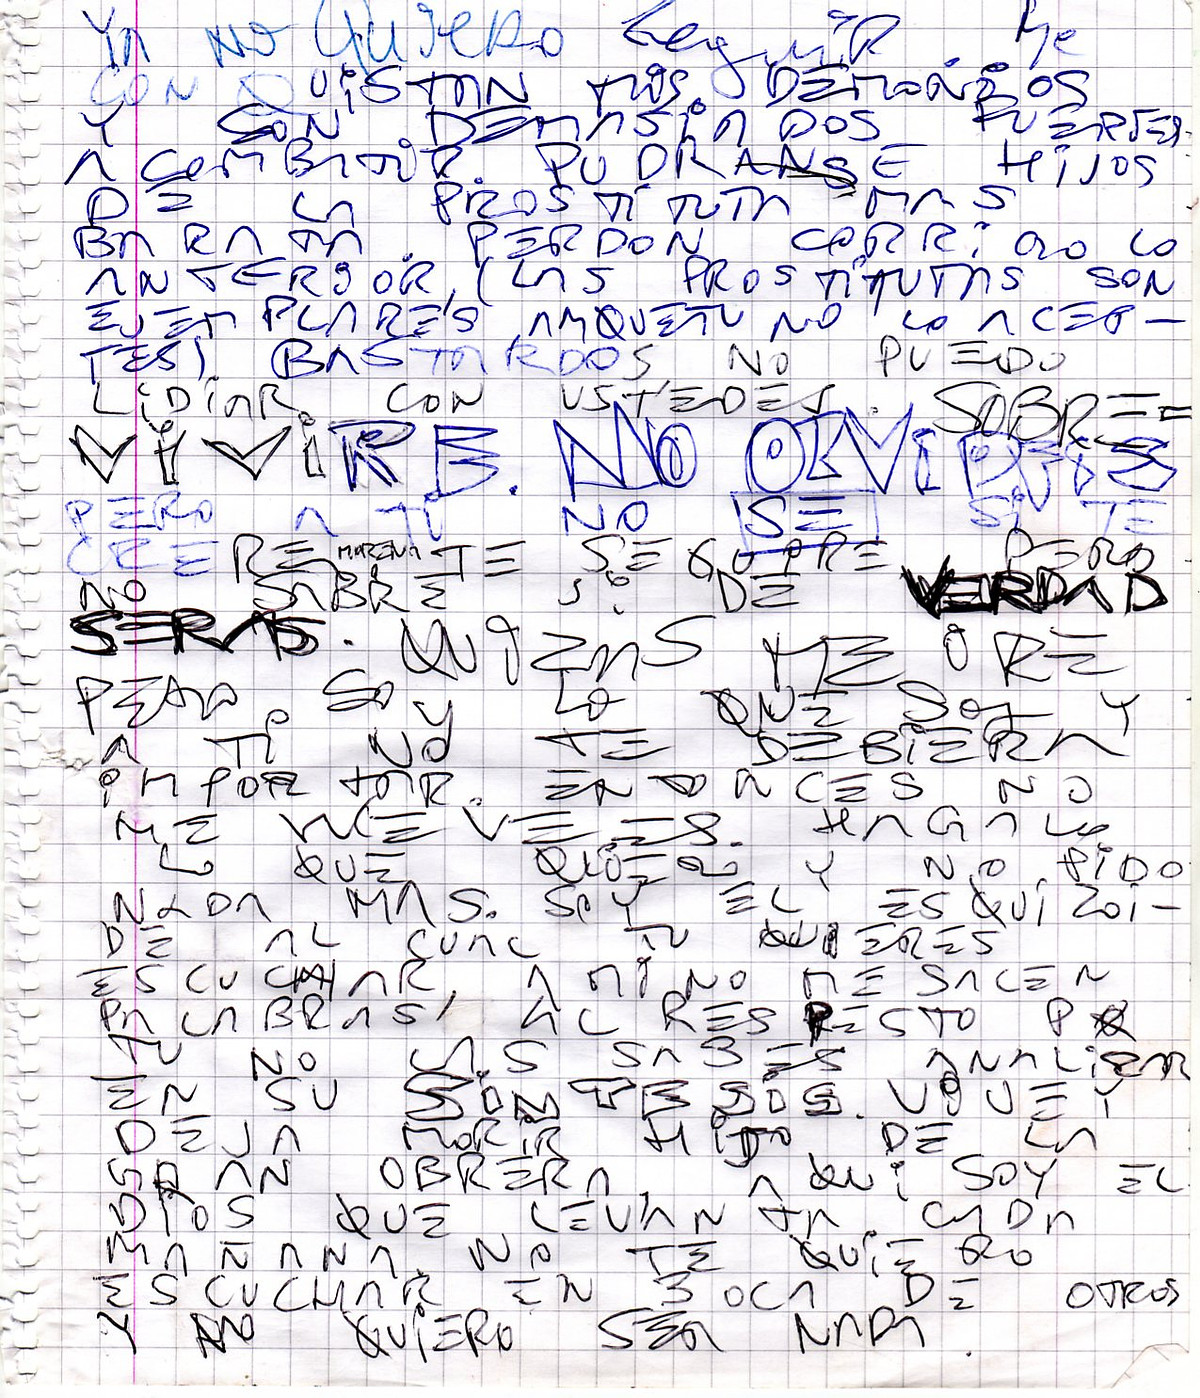 YA NO QUIERO SEGUIR ME
CONQUISTAN MIS DEMONIOS
Y SON DEMASIADOS FUERTES
A COMBATIR. PUDRANSE HIJOS
DE LA PROSTITUTA MAS
BARATA. PERDON CORRIGO LO
ANTERIOR, (LAS PROSTITUTAS SON
EJEMPLARES AMQUE TU NO LO ACEP-
TES) BASTARDOS NO PUEDO
LIDIAR CON USTEDES. SOBRE=
VIVIRE. NO OLVIDES
PERO A TI NO SE SI TE
CREERE MORENA TE SEGUIRE PERO
NO SABRE SI DE VERDAD
SERAS. QUIZAS ME
PERO SOY LO QUE SOY Y
A TI NO TE DEBIERA
IMPORTAR. ENTONCES NO
ME HAGA LO
LO QUE QUIERO Y NO PIDO
NADA MAS. SOY EL ESQUIZOI-
DE AL CUAL TU QUIERES
ESCUCHAR, A MI NO ME SALEN
PALABRAS AL RESPESTO PQ
TU NO LAS SABES ANALIZAR
EN SU SINTESIS. VIVE Y
DEJA MORIR HIJO DE LA
GRAN OBRERA, AQUI SOY EL
DIOS QUE LEVANTA CADA
MAÑANA, NO TE QUIERO
ESCUCHAR EN BOCA DE OTROS
Y NO QUIERO SER NADA.